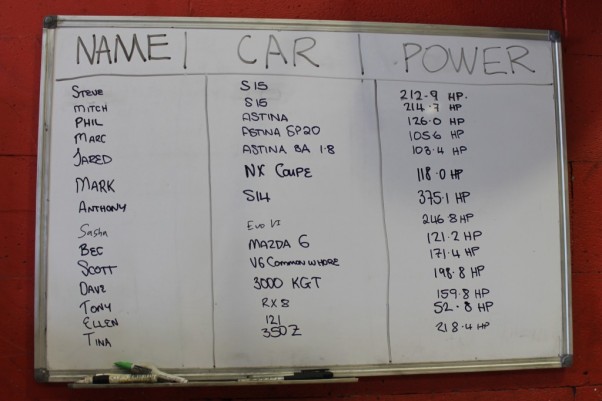 NAME | CAR | POWER
STEVE S15 212.9 HP.
MITCH S15 214.7 HP
PHIL ASTINA 126.0 HP
MARC ASTINA SP20 105.6 HP
JARED ASTINA BA 1.8 103.4 HP
MARK NX COUPE 118.0 HP
ANTHONY S14 375.1 HP
Sasha Evo VI 246.8 HP
BEC MAZDA 6 121.2 HP
SCOTT V6 COMMONWHORE 171.4 HP
DAVE 3000 KGT 198.8 HP
TONY RX8 159.8 HP
ELLEN 121 52.8 HP
TINA 350Z 218.4 HP